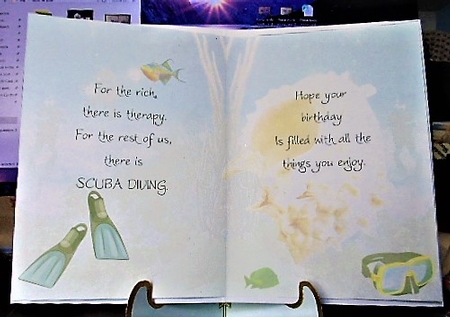 For the rich,
there is therapy.
For the rest of us,
there is
SCUBA DIVING.
Hope your
birthday
Is filled with all the
things you enjoy.